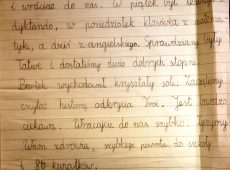 i wróćcie do nas. W piątek był
dyktando, w poniedziałek klasówka z matema-
tyki, a dziś z angielskiego. Sprawdziany były
łatwe i dostaliśmy dużo dobrych stopni.
Bartek wyhodował kryształy soli. Zaczęliśmy
czytać historię odkrycia Troi. Jest bardzo
ciekawa. Wracajcie do nas szybko. Życzymy
Wam zdrowia, szybkiego powrotu do szkoły
i